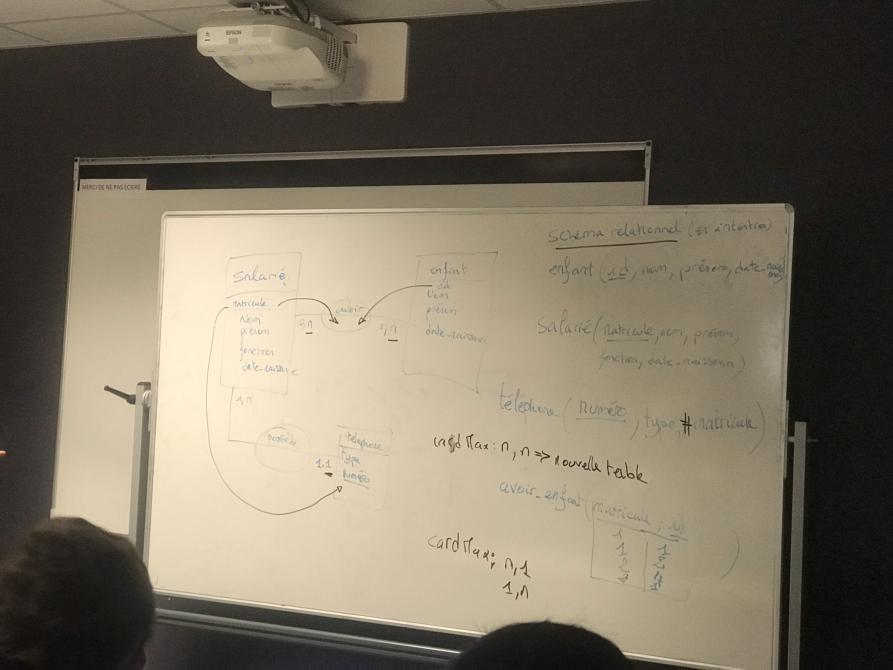 EPSON
MERCI DE NE PAS ECRIRE
Salarié
matricule
Nom
prénom
fonction
date_naissance
0,n
avoir
1,n
enfant
id
Nom
prénom
date_naissance
1,n
possède
1,1
telephone
type
numéro
Schéma relationnel (en intention)
enfant (id, nom, prénom, date_naissance)
Salarié (matricule, nom, prénom,
fonction, date_naissance)
téléphone (numéro, type, #matricule)
card Max : n, n => nouvelle table
avoir_enfant (matricule, id
)
card Max : n,1
1,n